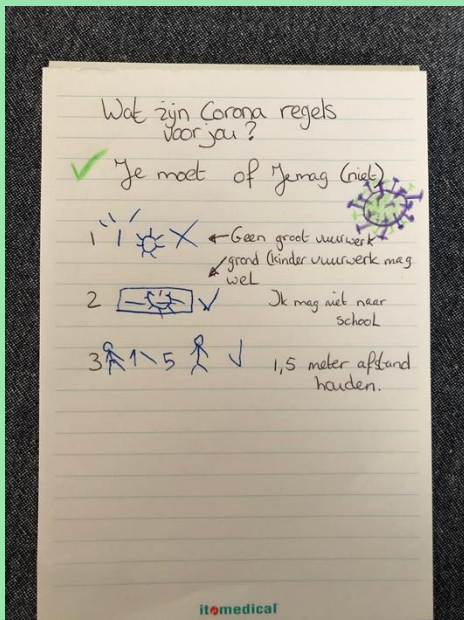 Wat zijn Corona regels
voor jou?
Je moet of Je mag (niet)
1 ← Geen groot vuurwerk
grond (kinder vuurwerk mag
wel
2 Ik mag niet naar
school
3 1\5 1,5 meter afstand
houden.
itomedical